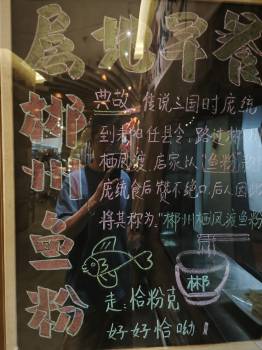 属地早餐
郴州鱼粉
典故 传说三国时庞统
到耒阳任县令,路过郴州
栖凤渡,店家以"鱼粉"
庞统食后赞不绝口,后人因
将其称为:"郴州栖凤渡鱼粉
郴
走:恰粉克
好好恰呦!